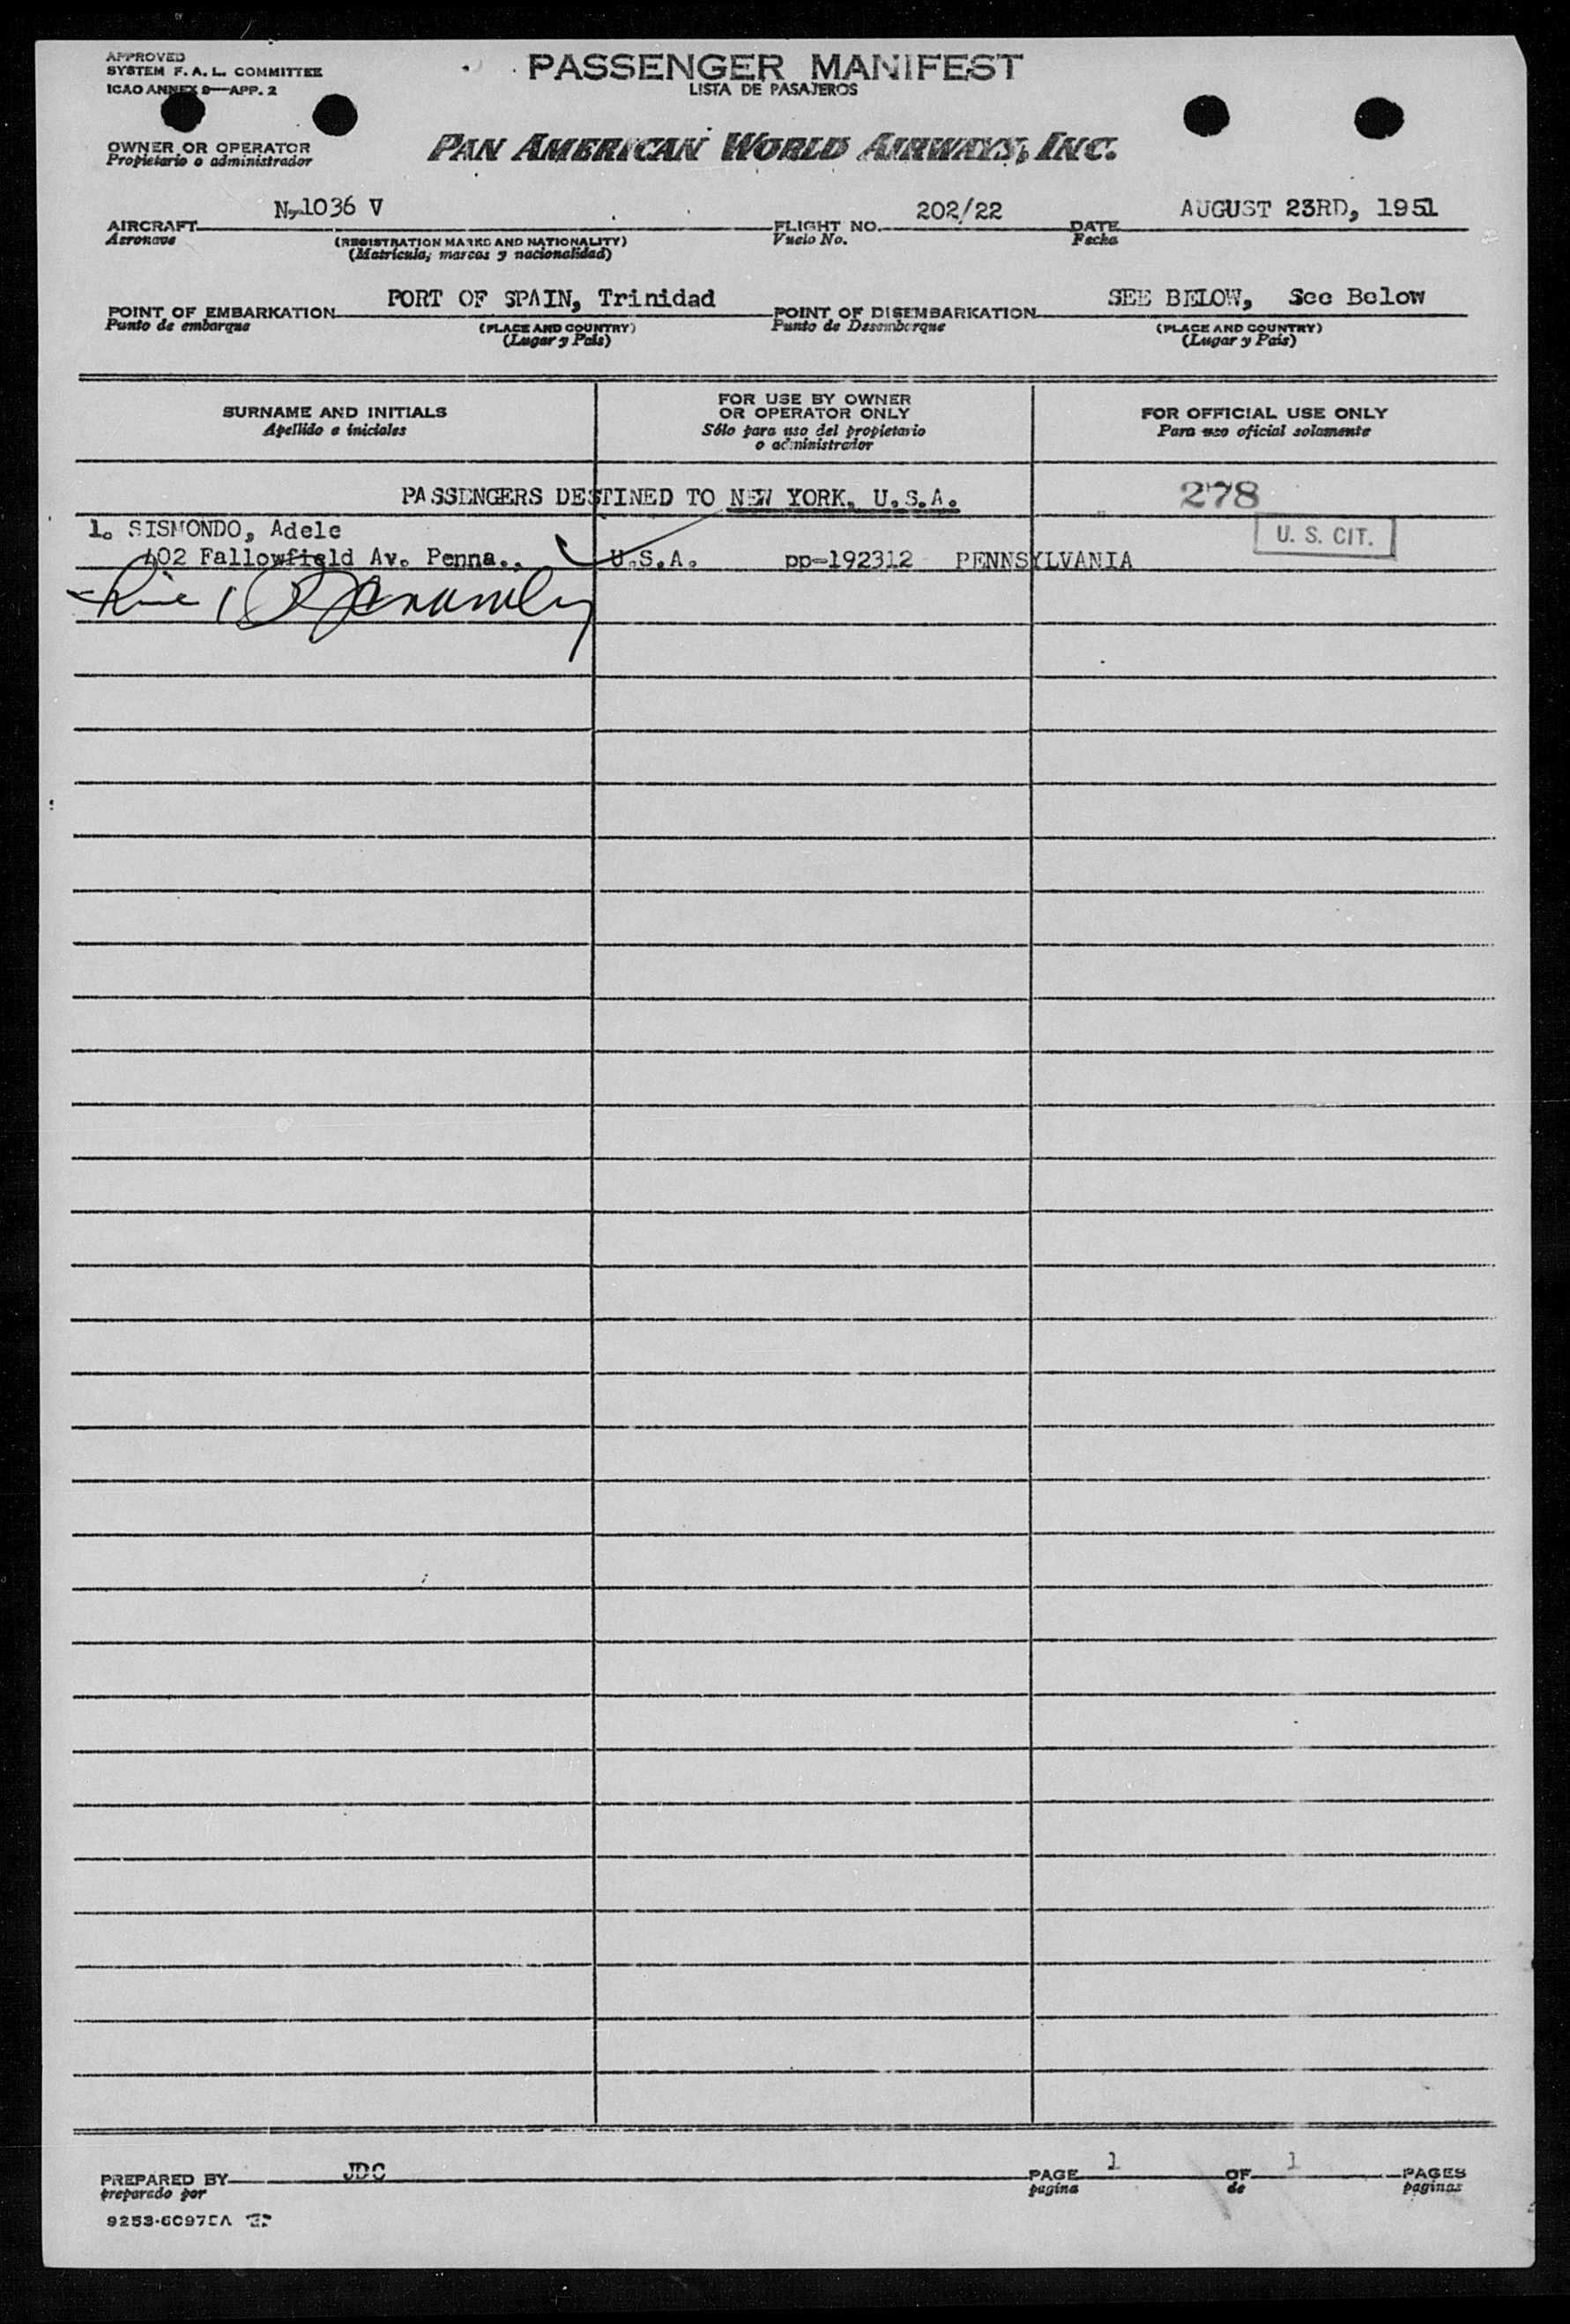 APPROVED
SYSTEM F. A. L. COMMITTEE
ICAO ANNEX 9—APP. 2
PASSENGER MANIFEST
LISTA DE PASAJEROS
OWNER OR OPERATOR
Propietario o administrador
PAN AMERICAN WORLD AIRWAYS, INC.
AIRCRAFT N-1036 V FLIGHT NO. 202/22 DATE AUGUST 23RD, 1951
Aeronave (REGISTRATION MARKS AND NATIONALITY) Vuelo No. Fecha
(Matricula, marcas y nacionalidad)
POINT OF EMBARKATION PORT OF SPAIN, Trinidad POINT OF DISEMBARKATION SEE BELOW, See Below
Punto de embarque (PLACE AND COUNTRY) Punto de Desembarque (PLACE AND COUNTRY)
(Lugar y Pais) (Lugar y Pais)
SURNAME AND INITIALS
Apellido e iniciales
FOR USE BY OWNER
OR OPERATOR ONLY
Sólo para uso del propietario
o administrador
FOR OFFICIAL USE ONLY
Para uso oficial solamente
PASSENGERS DESTINED TO NEW YORK, U.S.A. 278
1. SISMONDO, Adele U. S. CIT.
402 Fallowfield Av. Penna., U.S.A. pp-192312 PENNSYLVANIA
PREPARED BY JDC PAGE 1 OF 1 PAGES
preparado por pagina de paginas